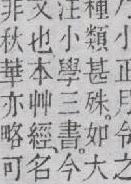 小正月令之
種類甚殊。如大
注小學三書。今
文也本艸經、名
非秋華亦略可